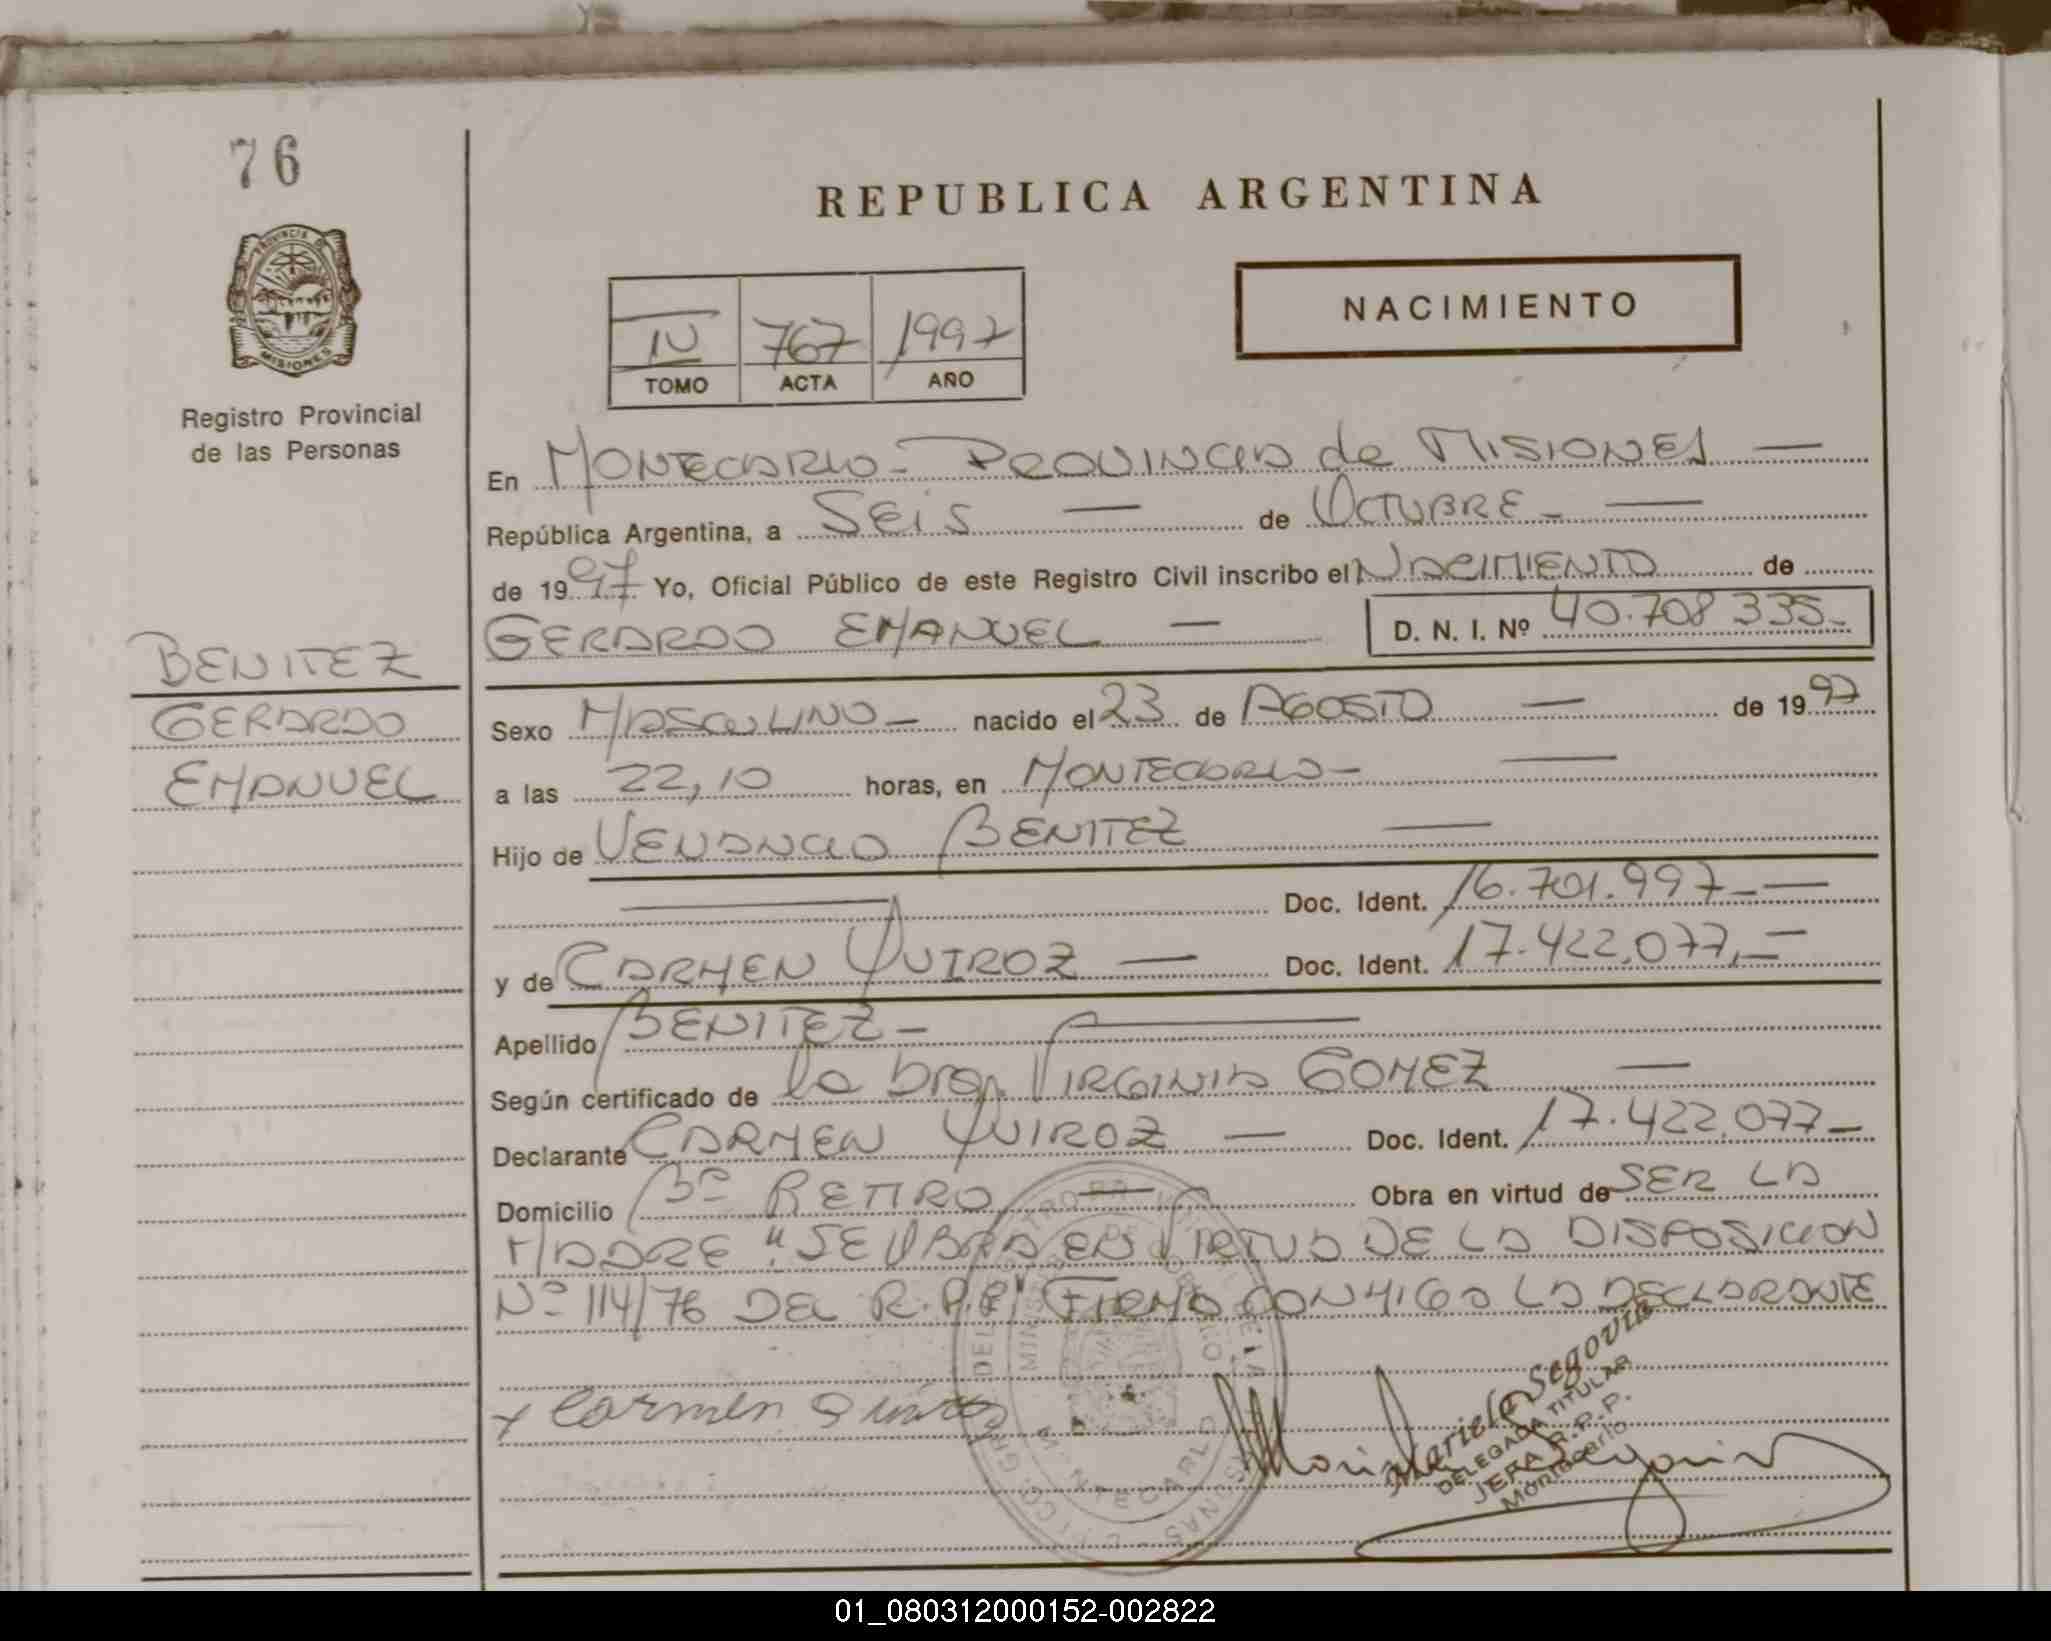 76
REPUBLICA ARGENTINA
PROVINCIA DE
MISIONES
Registro Provincial
de las Personas
NACIMIENTO
IV 767 1997
TOMO ACTA AÑO
En MONTECARLO - PROVINCIA de MISIONES —
República Argentina, a SEIS — de OCTUBRE - —
de 1997 Yo, Oficial Público de este Registro Civil inscribo el NACIMIENTO de
GERARDO EMANUEL — D. N. I. Nº 40.708 335-
BENITEZ
GERARDO
EMANUEL
Sexo MASCULINO - nacido el 23 de AGOSTO — de 1997
a las 22,10 horas, en MONTECARLO - —
Hijo de VENANCIO BENITEZ —
— Doc. Ident. 16.701.997 - —
y de CARMEN QUIROZ — Doc. Ident. 17.422.077, —
Apellido BENITEZ - —
Según certificado de la Dra. VIRGINIA GOMEZ —
Declarante CARMEN QUIROZ — Doc. Ident. 17.422.077 -
Domicilio Bº RETIRO — Obra en virtud de SER LA
MADRE "SE LABRA EN VIRTUD DE LA DISPOSICION
Nº 114/76 DEL R.P.P" FIRMA CONMIGO LA DECLARANTE
x Carmen Quiroz
Mariela Segovia
DELEGADA TITULAR
JEFA R.P.P.
Montecarlo
MONTECARLO
01_080312000152-002822